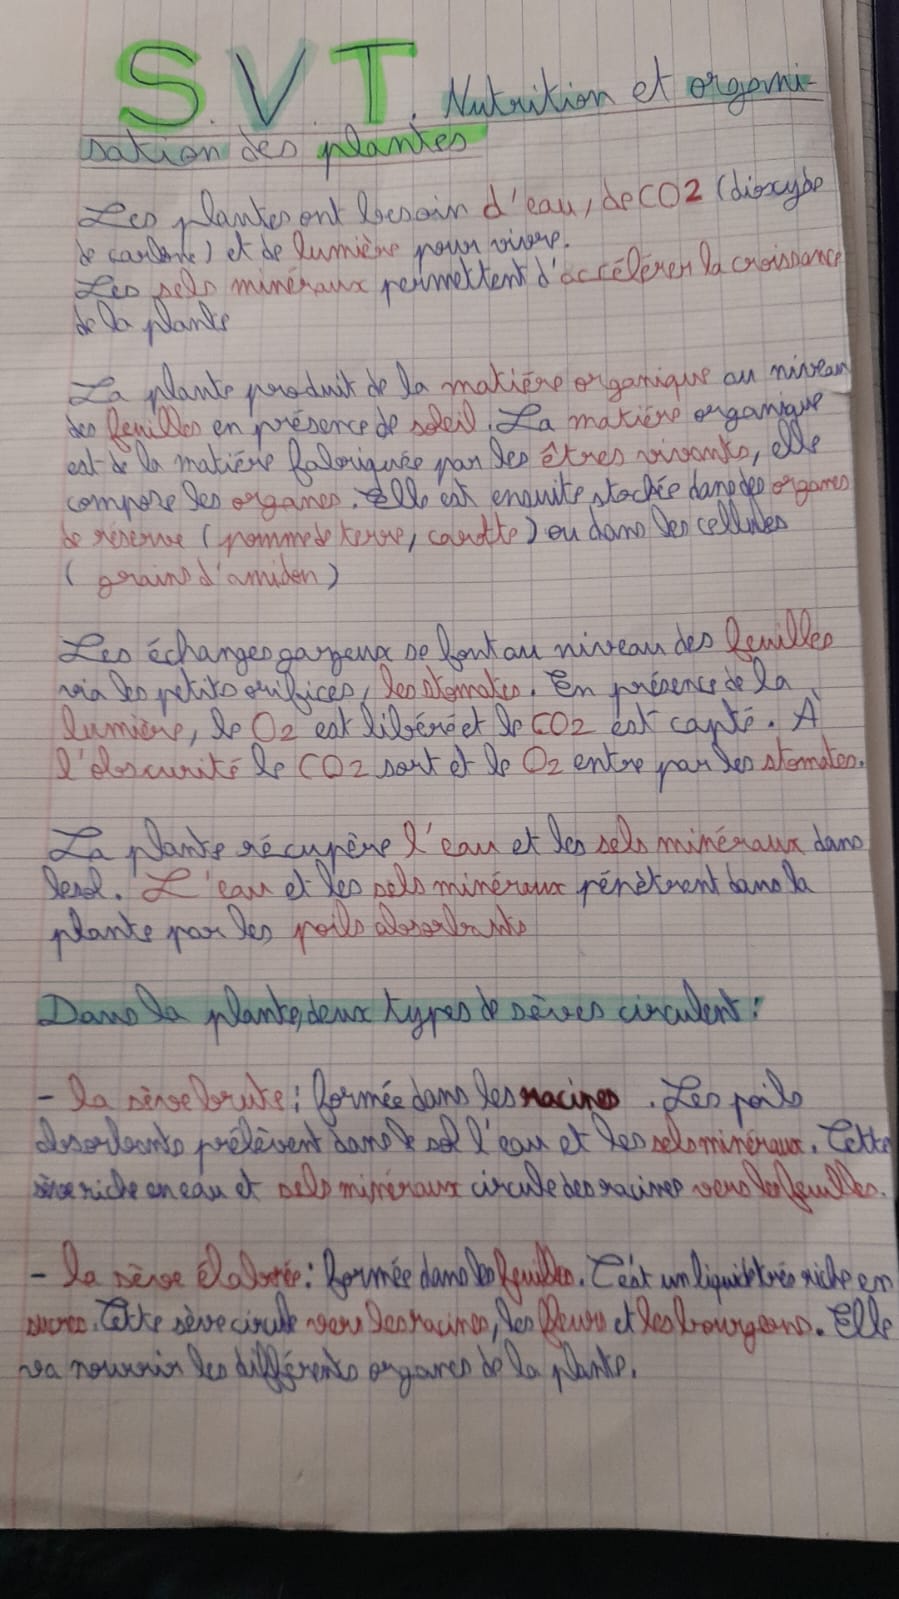 S.V.T. Nutrition et organi-
sation des plantes
Les plantes ont besoin d'eau, de CO2 (dioxyde
de carbone) et de lumière pour vivre.
Les sels minéraux permettent d'accélérer la croissance
de la plante
La plante produit de la matière organique au niveau
des feuilles en présence de soleil. La matière organique
est de la matière fabriquée par les êtres vivants, elle
compose les organes. Elle est ensuite stockée dans des organes
de réserve (pomme de terre, carotte) ou dans les cellules
(grains d'amidon)
Les échanges gazeux se font au niveau des feuilles
via les petits orifices, les stomates. En présence de la
lumière, le O2 est libéré et le CO2 est capté. À
l'obscurité le CO2 sort et le O2 entre par les stomates.
La plante récupère l'eau et les sels minéraux dans
le sol. L'eau et les sels minéraux pénètrent dans la
plante par les poils absorbants
Dans la plante, deux types de sèves circulent :
- la sève brute : formée dans les racines. Les poils
absorbants prélèvent dans le sol l'eau et les sels minéraux. Cette
sève riche en eau et sels minéraux circule des racines vers les feuilles.
- la sève élaborée : formée dans les feuilles. C'est un liquide très riche en
sucres. Cette sève circule vers les racines, les fleurs et les bourgeons. Elle
va nourrir les différents organes de la plante.